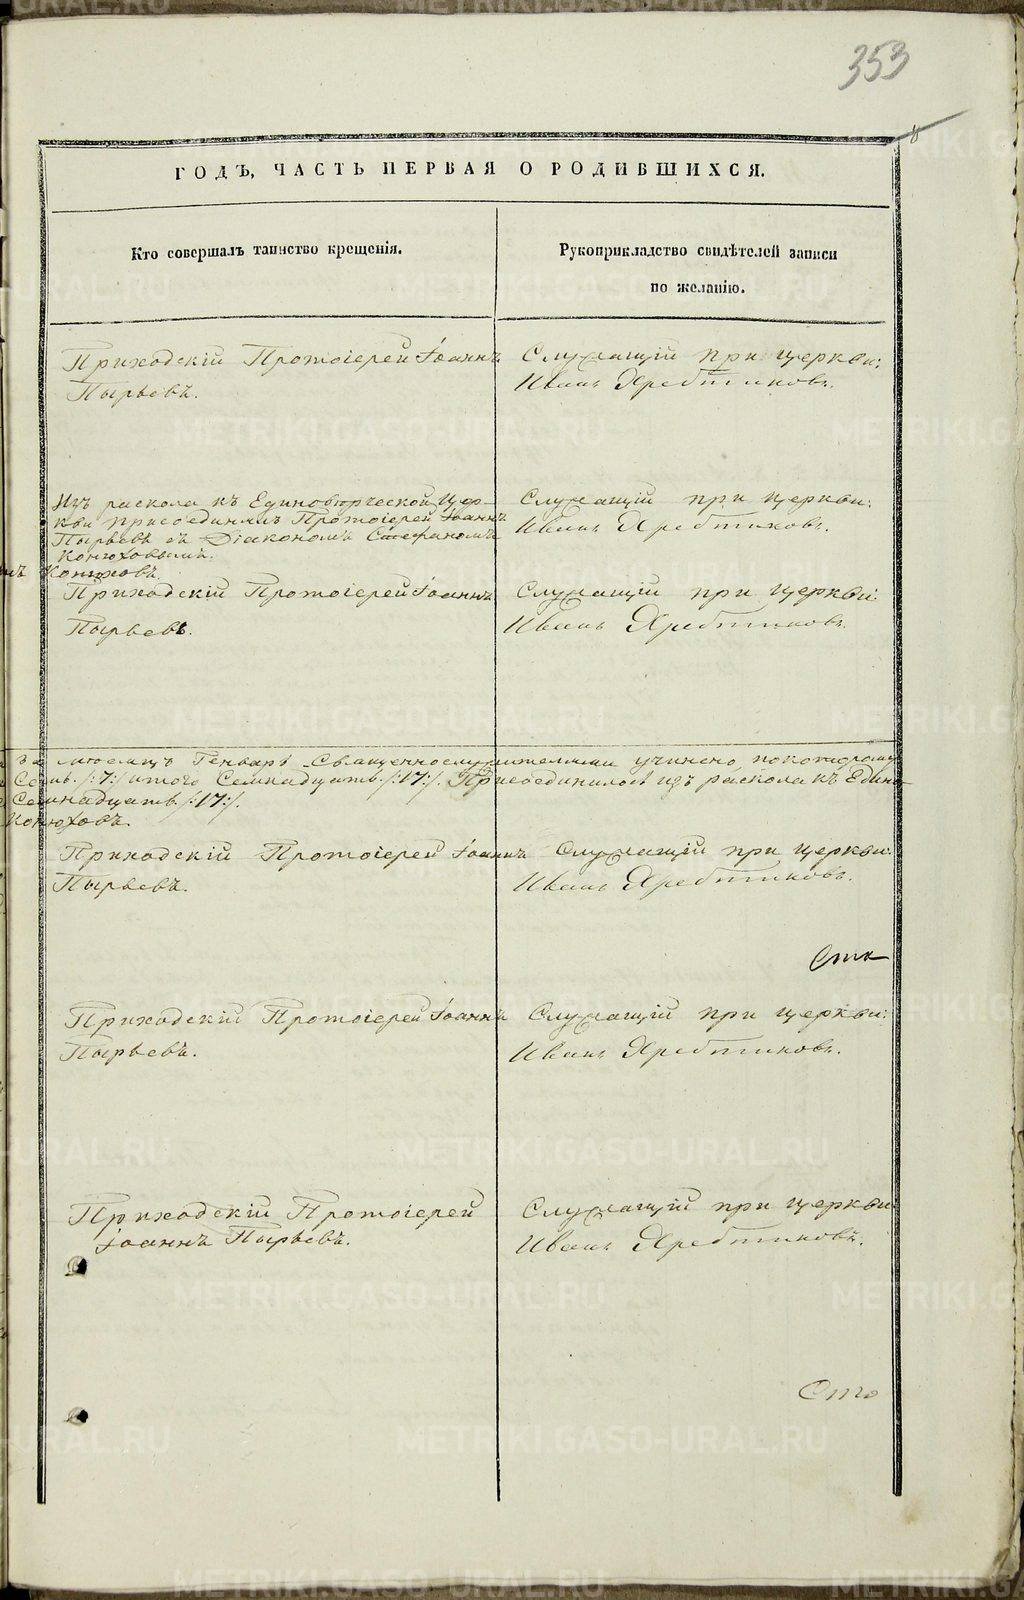 353
ГОДЪ, ЧАСТЬ ПЕРВАЯ О РОДИВШИХСЯ.
Кто совершалъ таинство крещенія.
Рукоприкладство свидѣтелей записи
по желанію.
Приходскій Протоіерей Іоаннъ
Пырьевъ.
Служащій при церкви:
Иванъ Хребтиковъ.
Изъ раскола къ Единовѣрческой Цер-
кви присоединялъ Протоіерей Іоаннъ
Пырьевъ съ Діакономъ Стефаномъ
Конюховымъ.
Конюховъ.
Служащій при церкви:
Иванъ Хребтиковъ.
Приходскій Протоіерей Іоаннъ
Пырьевъ.
Служащій при церкви:
Иванъ Хребтиковъ.
за мѣсяцъ Генварь Священнослужителями учинено, по которому
Семь /:7:/ итого Семнадцать /:17:/. Присоединилось изъ раскола къ Едино
Семнадцать /:17:/.
Конюховъ.
Приходскій Протоіерей Іоаннъ
Пырьевъ.
Служащій при церкви:
Иванъ Хребтиковъ.
Приходскій Протоіерей Іоаннъ
Пырьевъ.
Служащій при церкви:
Иванъ Хребтиковъ.
Приходскій Протоіерей
Іоаннъ Пырьевъ.
Служащій при церкви:
Иванъ Хребтиковъ.
METRIKI.GASO-URAL.RU